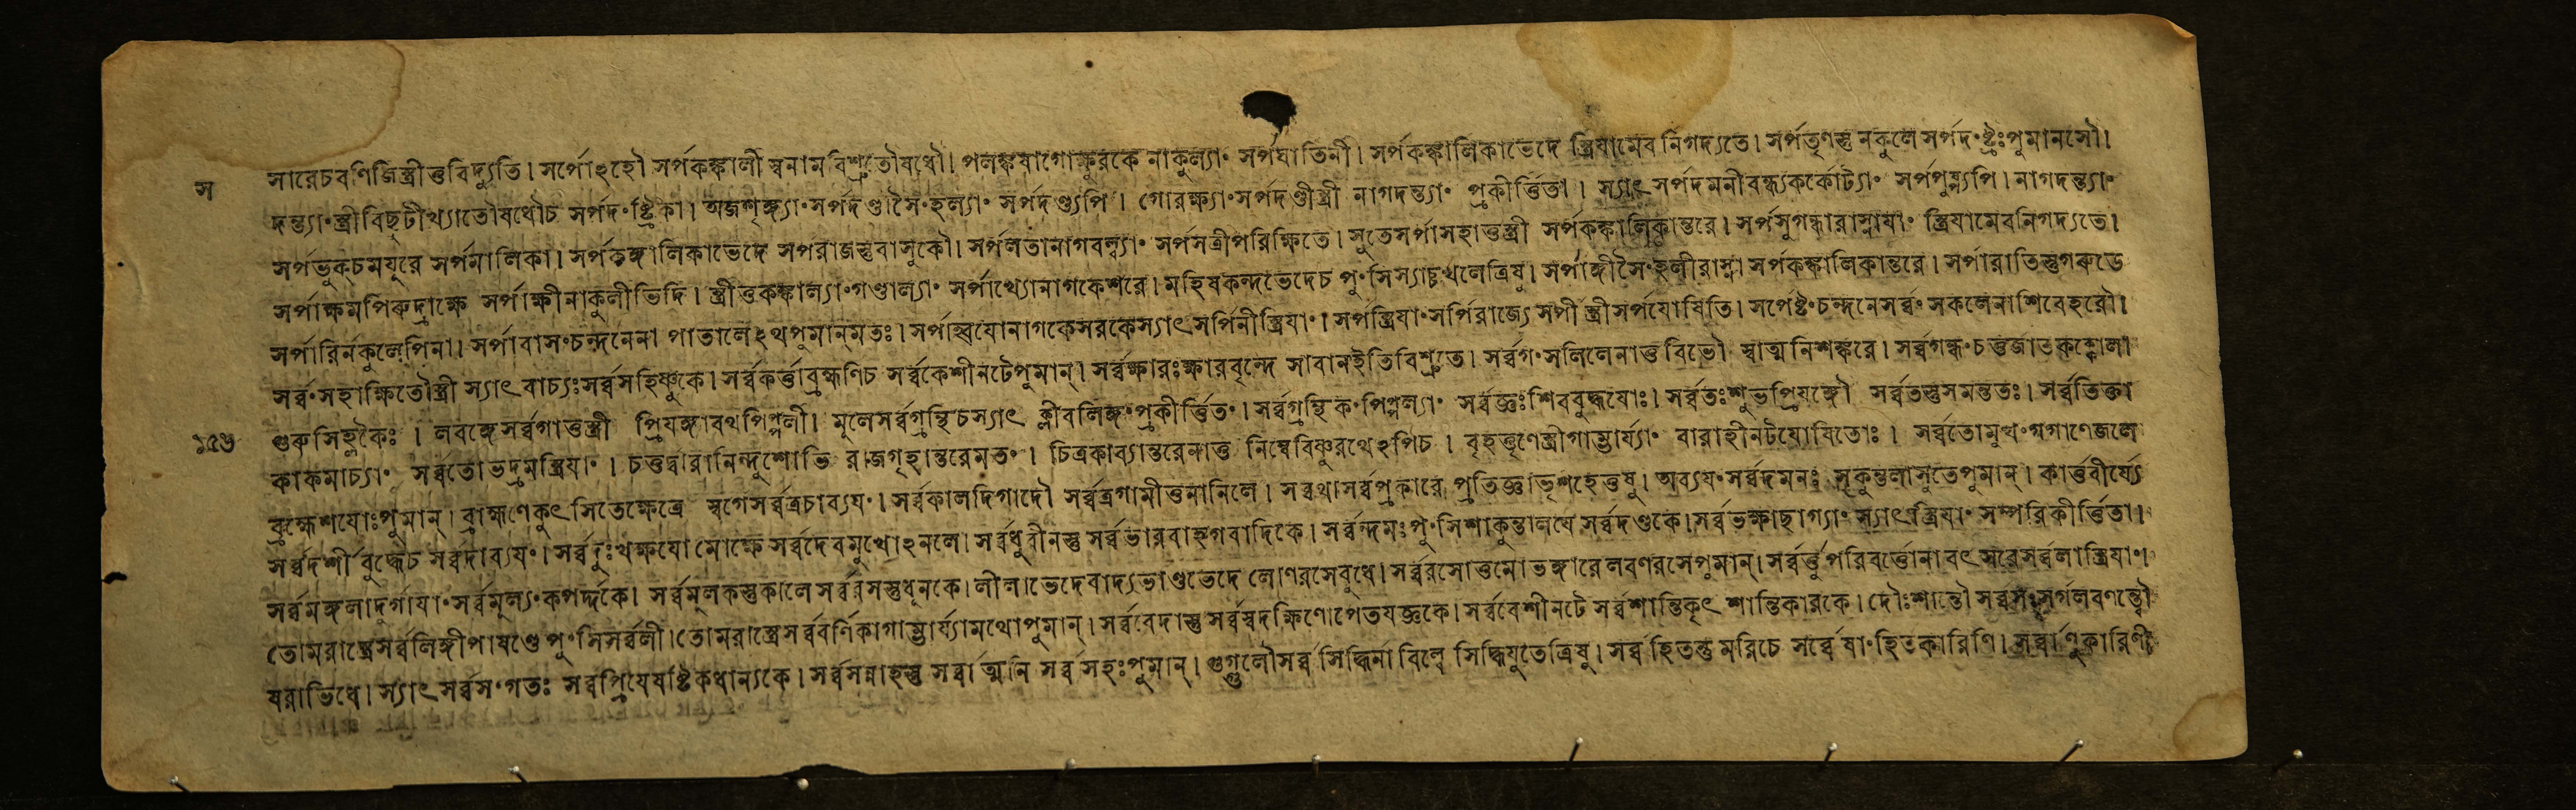 স
সারেচবণিজিস্ত্রীতুবিদ্যুতি। সর্পোঽহৌ সর্পকঙ্কালী স্বনামবিশ্রুতৌষধৌ। পলঙ্কষাগোক্ষুরকে নাকুল্যাং সর্পঘাতিনী। সর্পকঙ্কালিকাভেদে স্ত্রিযামেব নিগদ্যতে। সর্পতৃণস্তু নকুলে সর্পদংষ্ট্রঃপুমানসৌ।
দন্ত্যাংস্ত্রীবিছূটীখ্যাতৌষধৌচ সর্পদংষ্ট্রিকা। অজশৃঙ্গ্যাংসর্পদণ্ডাসৈংহল্যাং সর্পদণ্ড্যপি। গোরক্ষ্যাংসর্পদণ্ডীস্ত্রী নাগদন্ত্যাং প্রকীর্ত্তিতা। স্যাৎ সর্পদমনীবন্ধ্যকর্কোট্যাং সর্পপুষ্প্যপি। নাগদন্ত্যাং
সর্পভুক্চমযূরে সর্পমালিকা। সর্পকঙ্কালিকাভেদে সর্পরাজস্তুবাসুকৌ। সর্পলতানাগবল্ল্যাং সর্পসত্রীপরিক্ষিতে। সুতেসর্পাসহাতুস্ত্রী সর্পকঙ্কালিকান্তরে। সর্পসুগন্ধারাস্নাযাং স্ত্রিযামেবনিগদ্যতে।
সর্পাক্ষমপিরুদ্রাক্ষে সর্পাক্ষীনাকুলীভিদি। স্ত্রীতুকঙ্কাল্যাংগণ্ডাল্যাং সর্পাখ্যোনাগকেশরে। মহিষকন্দভেদেচ পুংসিস্যাচ্চখলেত্রিষু। সর্পাঙ্গীসৈংহলীরাস্না সর্পকঙ্কালিকান্তরে। সর্পারাতিস্তুগরুডে
সর্পারির্নকুলেপিনা। সর্পাবাসংচন্দনেনা পাতালেঽথপুমান্মতঃ। সর্পাহ্বযোনাগকেসরকেস্যাৎ সর্পিনীস্ত্রিযাং। সর্পস্ত্রিযাংসর্পিরাজ্যে সর্পী স্ত্রীসর্পযোষিতি। সর্পেষ্টংচন্দনেসর্ব্বং সকলেনাশিবেহরৌ।
সর্ব্বংসহাক্ষিতৌস্ত্রী স্যাৎ বাচ্যঃসর্ব্বসহিষ্ণুকে। সর্ব্বকর্ত্তাব্রহ্মণিচ সর্ব্বকেশীনটেপুমান্। সর্ব্বক্ষারঃক্ষারবৃন্দে সাবানইতিবিশ্রুতে। সর্ব্বগংসলিলেনাতু বিভৌ স্বাত্মনিশঙ্করে। সর্ব্বগন্ধংচতুর্জাতকক্কোলা
১৫৬
গুরুসিহ্লকৈঃ। লবঙ্গেসর্ব্বগাতুস্ত্রী প্রিযঙ্গাবথপিপ্পলী। মূলেসর্ব্বগ্রন্থিচস্যাৎ ক্লীবলিঙ্গংপ্রকীর্ত্তিতং। সর্ব্বগ্রন্থিকংপিপ্পল্যাং সর্ব্বজ্ঞঃশিববুদ্ধযোঃ। সর্ব্বতঃশুভপ্রিযঙ্গৌ সর্ব্বতস্তুসমন্ততঃ। সর্ব্বতিক্তা
কাকমাচ্যাং সর্ব্বতোভদ্রমস্ত্রিযাং। চতুর্দ্বারানিন্দুশোভি রাজগৃহান্তরেমতং। চিত্রকাব্যান্তরেনাতু নিম্বেবিষ্ণুরথেঽপিচ। বৃহত্তৃণেস্ত্রীগাম্ভার্য্যাং বারাহীনটযোষিতোঃ। সর্ব্বতোমুখংগগাণেজলে
ব্রহ্মেশযোঃপুমান্। ব্রাহ্মণেকুৎসিতেক্ষেত্রে স্বর্গেসর্ব্বত্রচাব্যযং। সর্ব্বকালদিগাদৌ সর্ব্বত্রগামীতুনানিলে। সর্ব্বথাসর্ব্বপ্রকারে প্রতিজ্ঞাভৃশহেতুষু। অব্যযংসর্ব্বদমনঃ সকুন্তলাসুতেপুমান্। কার্ত্তবীর্য্যে
সর্ব্বদর্শী বুদ্ধেচ সর্ব্বদাব্যযং। সর্ব্বদুঃখক্ষযো মোক্ষে সর্ব্বদেবমুখোঽনলে। সর্ব্বধুরীনস্তু সর্ব্বভারবাহগবাদিকে। সর্ব্বন্দমঃপুংসিশাকুন্তালযে সর্ব্বদণ্ডকে।সর্ব্বভক্ষাছাগ্যাং স্যাৎস্ত্রিযাং সম্পরিকীর্ত্তিতা।
সর্ব্বমঙ্গলাদুর্গাযাংসর্ব্বমূল্যংকপর্দ্দকে। সর্ব্বমূলকস্তুকালে সর্ব্বরসস্তুধূনকে। লীলাভেদেবাদ্যভাণ্ডভেদে লোণরসেবুধে। সর্ব্বরসোত্তমোভঙ্গারেলবণরসেপুমান্। সর্ব্বর্ত্তুপরিবর্ত্তোনাবৎসরেসর্ব্বলাস্ত্রিযাং।
তোমরাস্ত্রেসর্ব্বলিঙ্গীপাষণ্ডে পুংসিসর্ব্বলী।তোমরাস্ত্রেসর্ব্ববর্ণিকাগাম্ভার্য্যামথোপুমান্। সর্ব্ববেদাস্তু সর্ব্বস্বদক্ষিণোপেতযজ্ঞকে। সর্ব্ববেশীনটে সর্ব্বশান্তিকৃৎ শান্তিকারকে। দৌঃশান্তৌ
ষরাভিধে। স্যাৎ সর্ব্বসংগতঃ সর্ব্বপ্রিযেষষ্টিকধান্যকে। সর্ব্বসন্নাহস্তু সর্ব্বাত্মনি সর্ব্বসহঃপুমান্। গুগ্গুলৌসর্ব্বসিদ্ধির্নাবিল্বে সিদ্ধিযুতেত্রিষু। সর্ব্বহিতন্তুমরিচে সর্ব্বেষাংহিতকারিণি।